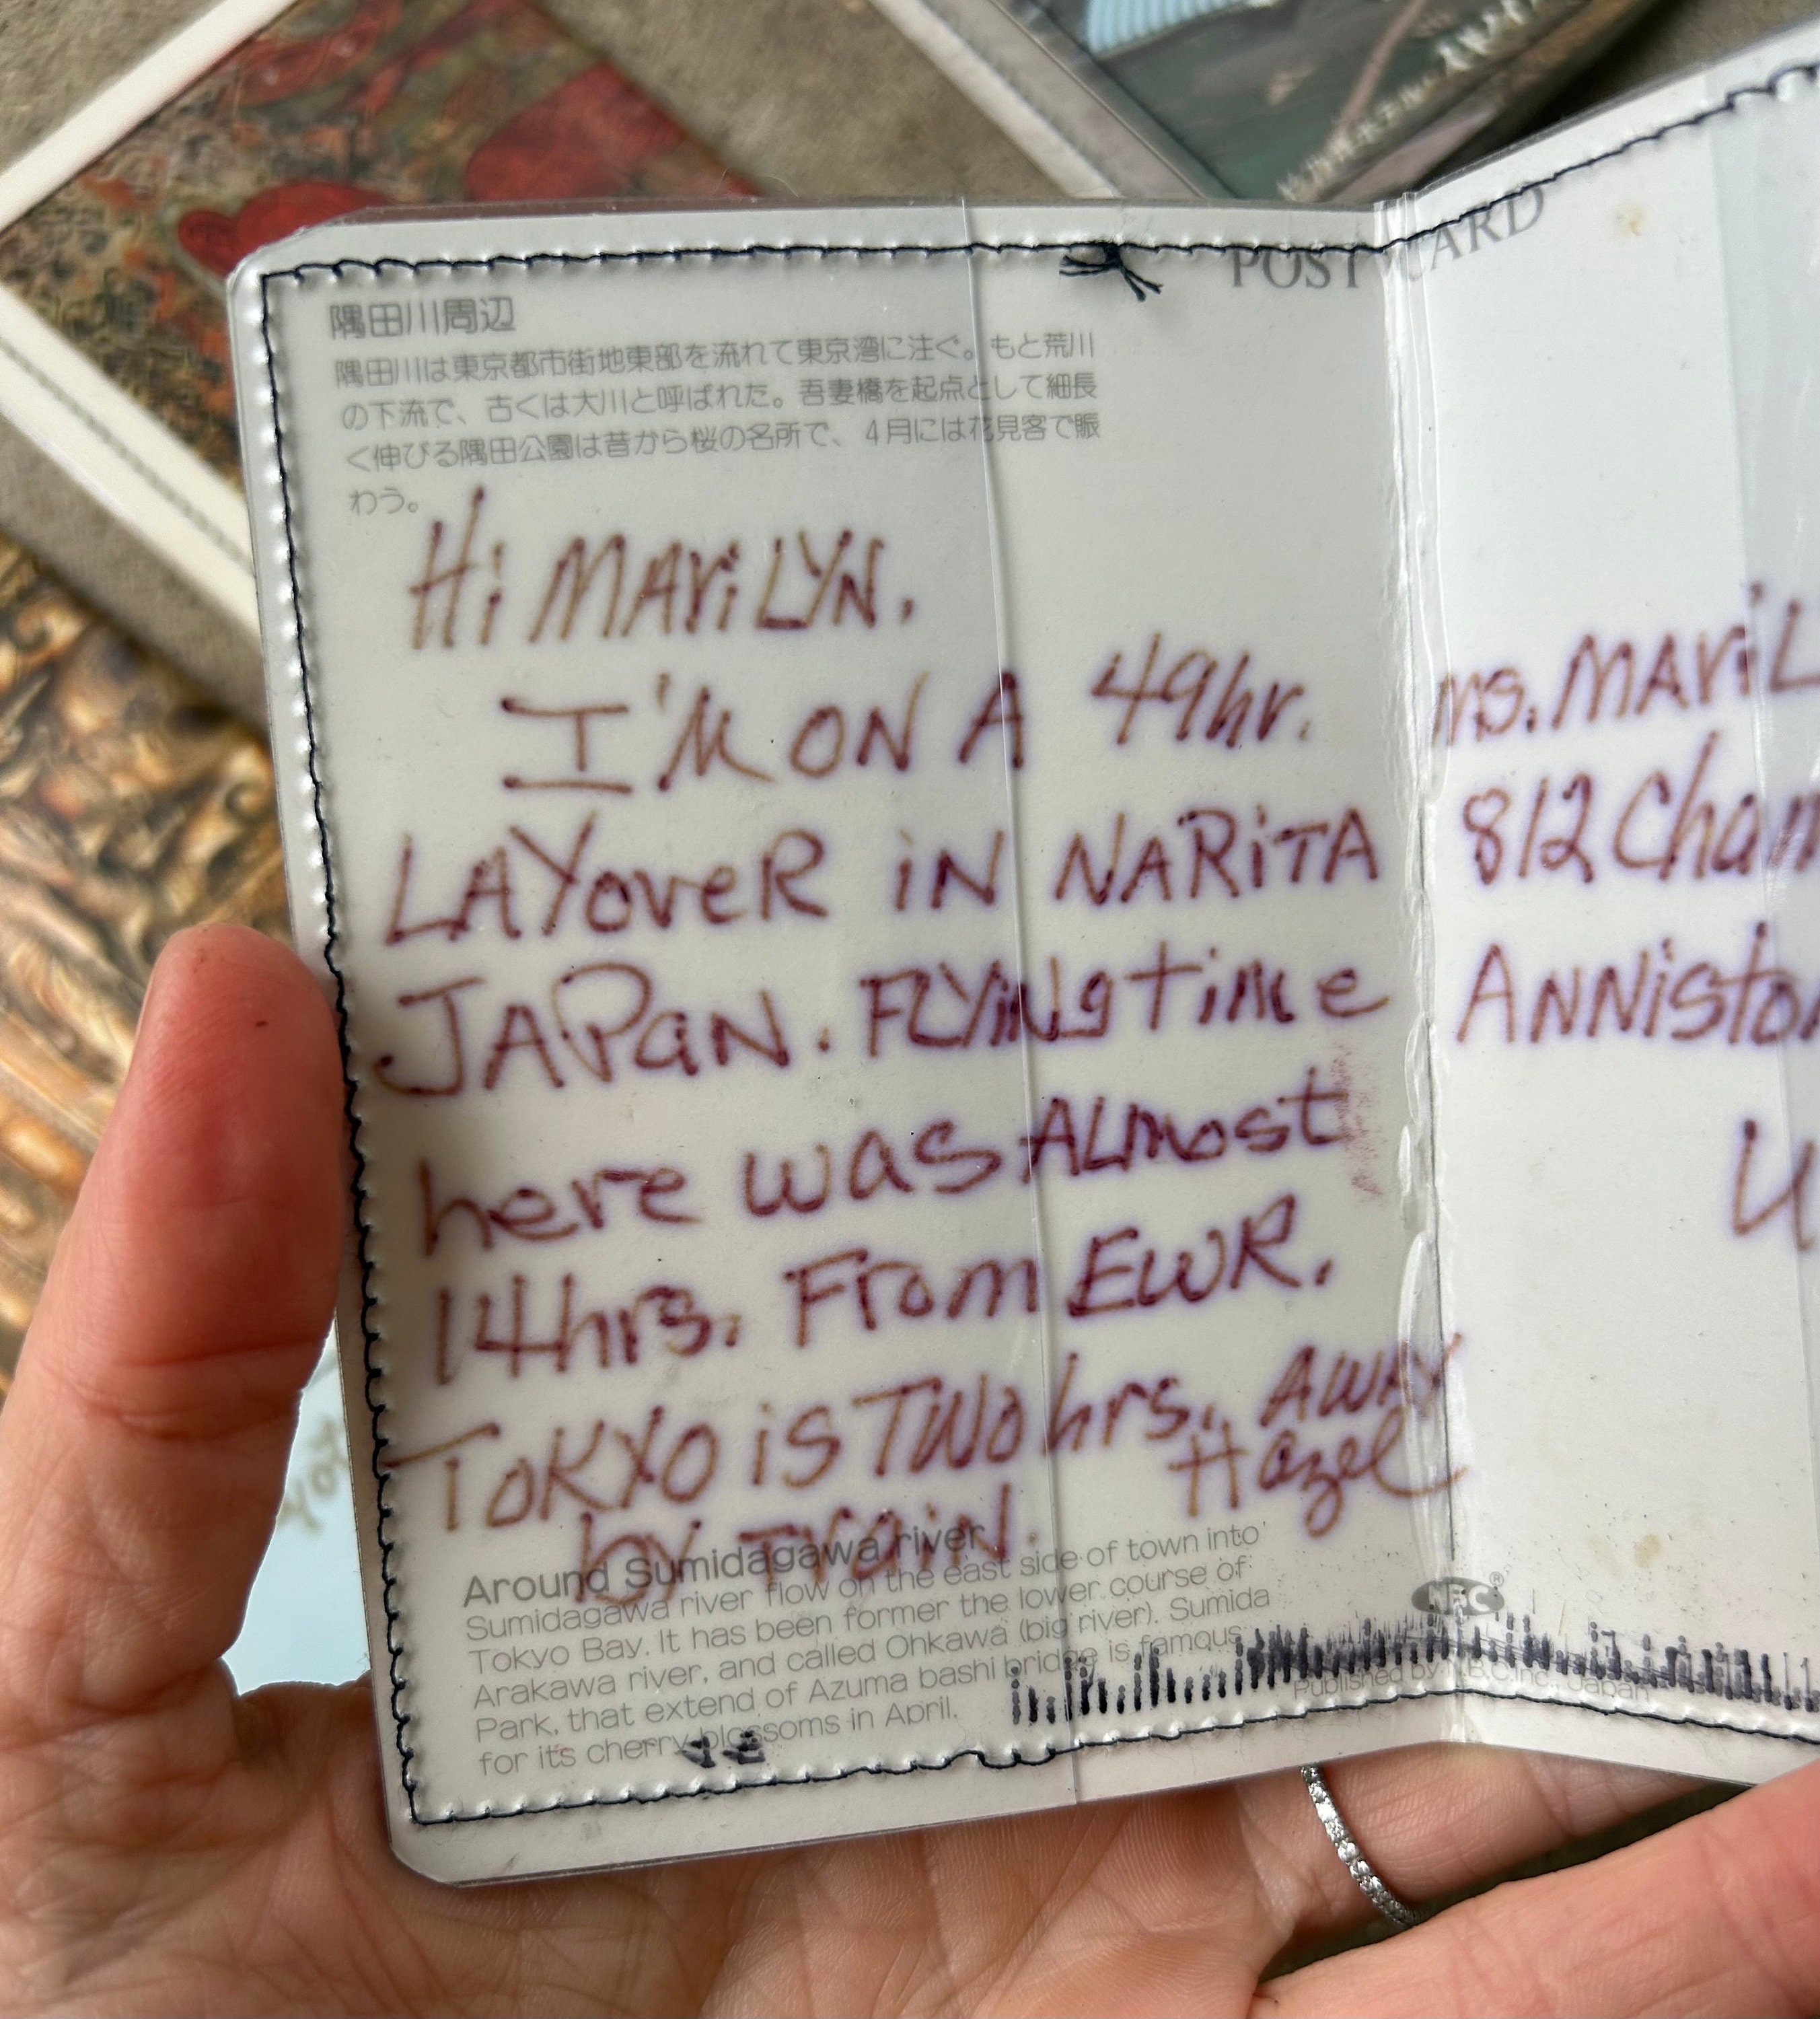 POST CARD
隅田川周辺
隅田川は東京都市街地東部を流れて東京湾に注ぐ。もと荒川
の下流で、古くは大川と呼ばれた。吾妻橋を起点として細長
く伸びる隅田公園は昔から桜の名所で、4月には花見客で賑
わう。
Hi MARiLYN,
I'M ON A 49hr.
LAYoveR iN NARiTA
JAPaN. FLYiNg time
here was ALmost
14hrs. From EWR.
ToKYo is Two hrs. AWAY
by TraiN. Hazel
Around Sumidagawa river
Sumidagawa river flow on the east side of town into
Tokyo Bay. It has been former the lower course of
Arakawa river, and called Ohkawa (big river). Sumida
Park, that extend of Azuma bashi bridge is famous
for it's cherry blossoms in April.
ms. MAriL
812 Cham
ANNistoN
U
NBC
Published by N.B.C. Inc., Japan